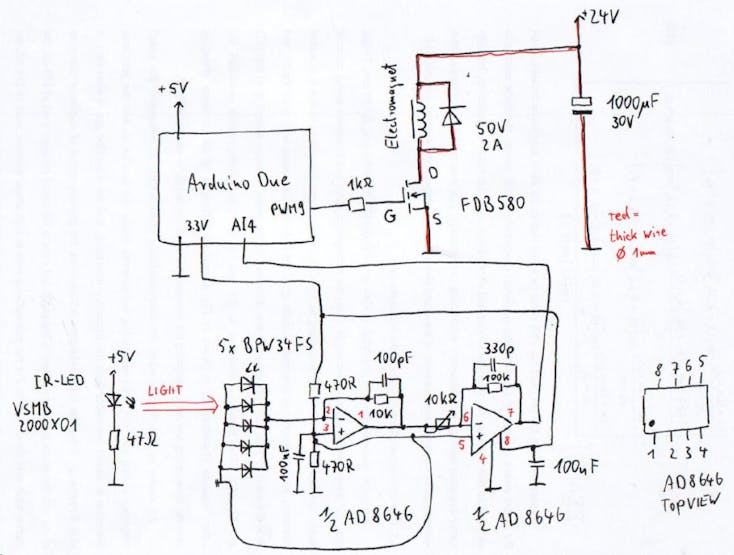 +24V
+5V
Electromagnet
50V
2A
1000µF
30V
Arduino Due
PWM9
1kΩ
D
G
S
FDB580
3.3V
AI4
red=
thick wire
Ø 1mm
5x BPW34FS
+5V
IR-LED
VSMB
2000X01
47Ω
LIGHT
470R
100pF
10k
2
3
1
100nF
470R
10kΩ
330p
100k
6
5
7
8
4
100nF
1/2 AD8646
1/2 AD8646
8 7 6 5
1 2 3 4
AD8646
TOPVIEW